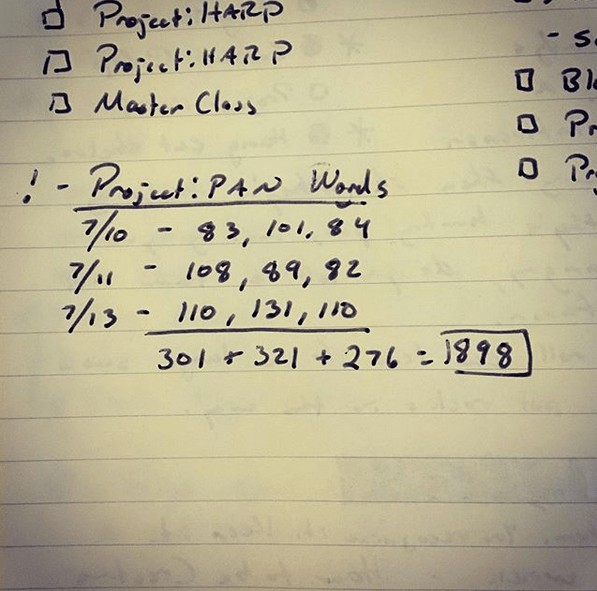 Project: HARP
Project: HARP
Master Class
! - Project: PAN Words
7/10 - 83, 101, 84
7/11 - 108, 89, 82
7/13 - 110, 131, 110
301 + 321 + 276 = 898